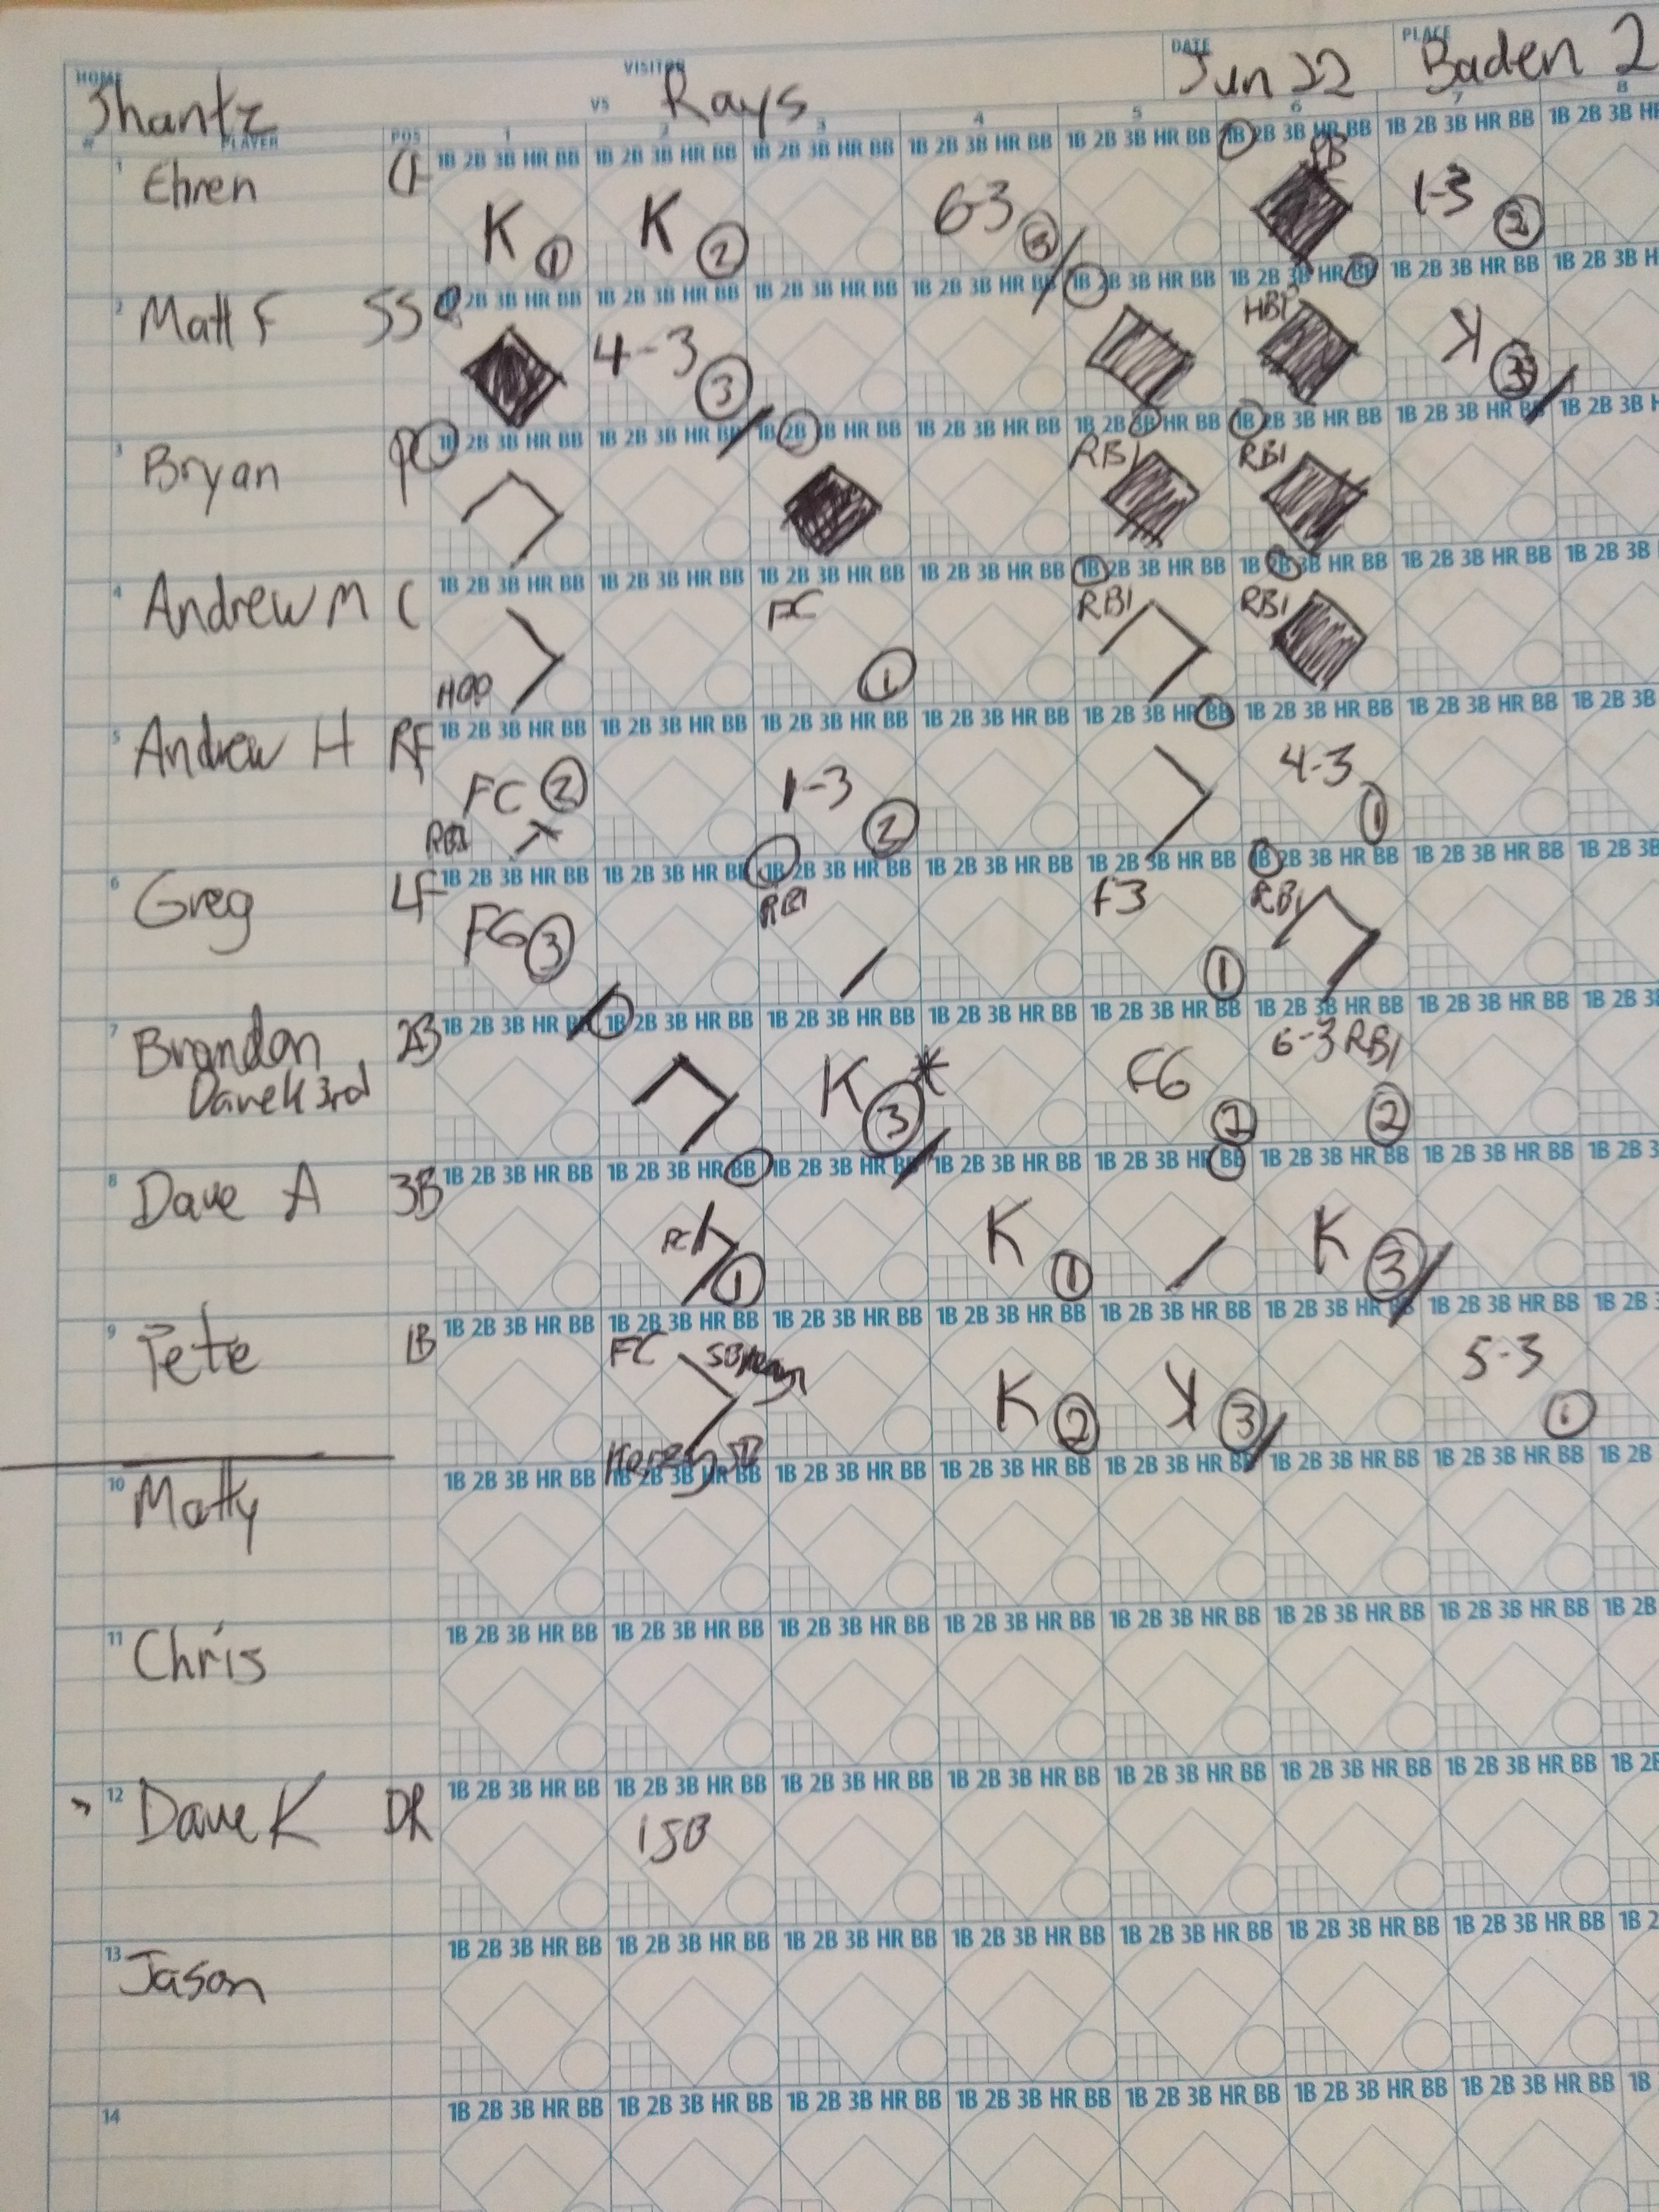 HOME VISITOR DATE PLACE
Shantz VS Rays Jun 22 Baden 2
# PLAYER POS 1 2 3 4 5 6 7 8
1B 2B 3B HR BB 1B 2B 3B HR BB 1B 2B 3B HR BB 1B 2B 3B HR BB 1B 2B 3B HR BB 1B 2B 3B HR BB 1B 2B 3B HR BB 1B 2B 3B HR
1 Ehren CF K 1 K 2 6-3 3 1-3 2
1B 2B 3B HR BB 1B 2B 3B HR BB 1B 2B 3B HR BB 1B 2B 3B HR BB 1B 2B 3B HR BB 1B 2B 3B HR BB 1B 2B 3B HR BB 1B 2B 3B H
2 Matt F SS 4-3 3 HBP K 3
1B 2B 3B HR BB 1B 2B 3B HR BB 1B 2B 3B HR BB 1B 2B 3B HR BB 1B 2B 3B HR BB 1B 2B 3B HR BB 1B 2B 3B HR BB 1B 2B 3B H
3 Bryan P RBI RBI
1B 2B 3B HR BB 1B 2B 3B HR BB 1B 2B 3B HR BB 1B 2B 3B HR BB 1B 2B 3B HR BB 1B 2B 3B HR BB 1B 2B 3B HR BB 1B 2B 3B
4 Andrew M C FC 1 RBI RBI
1B 2B 3B HR BB 1B 2B 3B HR BB 1B 2B 3B HR BB 1B 2B 3B HR BB 1B 2B 3B HR BB 1B 2B 3B HR BB 1B 2B 3B HR BB 1B 2B 3B
5 Andrew H RF FC 2 RBI 1-3 2 4-3 1
1B 2B 3B HR BB 1B 2B 3B HR BB 1B 2B 3B HR BB 1B 2B 3B HR BB 1B 2B 3B HR BB 1B 2B 3B HR BB 1B 2B 3B HR BB 1B 2B 3B
6 Greg LF F6 3 RBI F3 1 RBI
1B 2B 3B HR BB 1B 2B 3B HR BB 1B 2B 3B HR BB 1B 2B 3B HR BB 1B 2B 3B HR BB 1B 2B 3B HR BB 1B 2B 3B HR BB 1B 2B 3
7 Brandon 2B K 3 * F6 2 6-3 RBI 2
Dave K 3rd
1B 2B 3B HR BB 1B 2B 3B HR BB 1B 2B 3B HR BB 1B 2B 3B HR BB 1B 2B 3B HR BB 1B 2B 3B HR BB 1B 2B 3B HR BB 1B 2B 3
8 Dave A 3B FC 1 K 1 K 3
1B 2B 3B HR BB 1B 2B 3B HR BB 1B 2B 3B HR BB 1B 2B 3B HR BB 1B 2B 3B HR BB 1B 2B 3B HR BB 1B 2B 3B HR BB 1B 2B 3
9 Pete 1B FC SB K 2 K 3 5-3 1
1B 2B 3B HR BB 1B 2B 3B HR BB 1B 2B 3B HR BB 1B 2B 3B HR BB 1B 2B 3B HR BB 1B 2B 3B HR BB 1B 2B 3B HR BB 1B 2B
10 Matty
1B 2B 3B HR BB 1B 2B 3B HR BB 1B 2B 3B HR BB 1B 2B 3B HR BB 1B 2B 3B HR BB 1B 2B 3B HR BB 1B 2B 3B HR BB 1B 2B
11 Chris
1B 2B 3B HR BB 1B 2B 3B HR BB 1B 2B 3B HR BB 1B 2B 3B HR BB 1B 2B 3B HR BB 1B 2B 3B HR BB 1B 2B 3B HR BB 1B 2B
12 Dave K DR 1SB
1B 2B 3B HR BB 1B 2B 3B HR BB 1B 2B 3B HR BB 1B 2B 3B HR BB 1B 2B 3B HR BB 1B 2B 3B HR BB 1B 2B 3B HR BB 1B 2
13 Jason
1B 2B 3B HR BB 1B 2B 3B HR BB 1B 2B 3B HR BB 1B 2B 3B HR BB 1B 2B 3B HR BB 1B 2B 3B HR BB 1B 2B 3B HR BB 1B
14